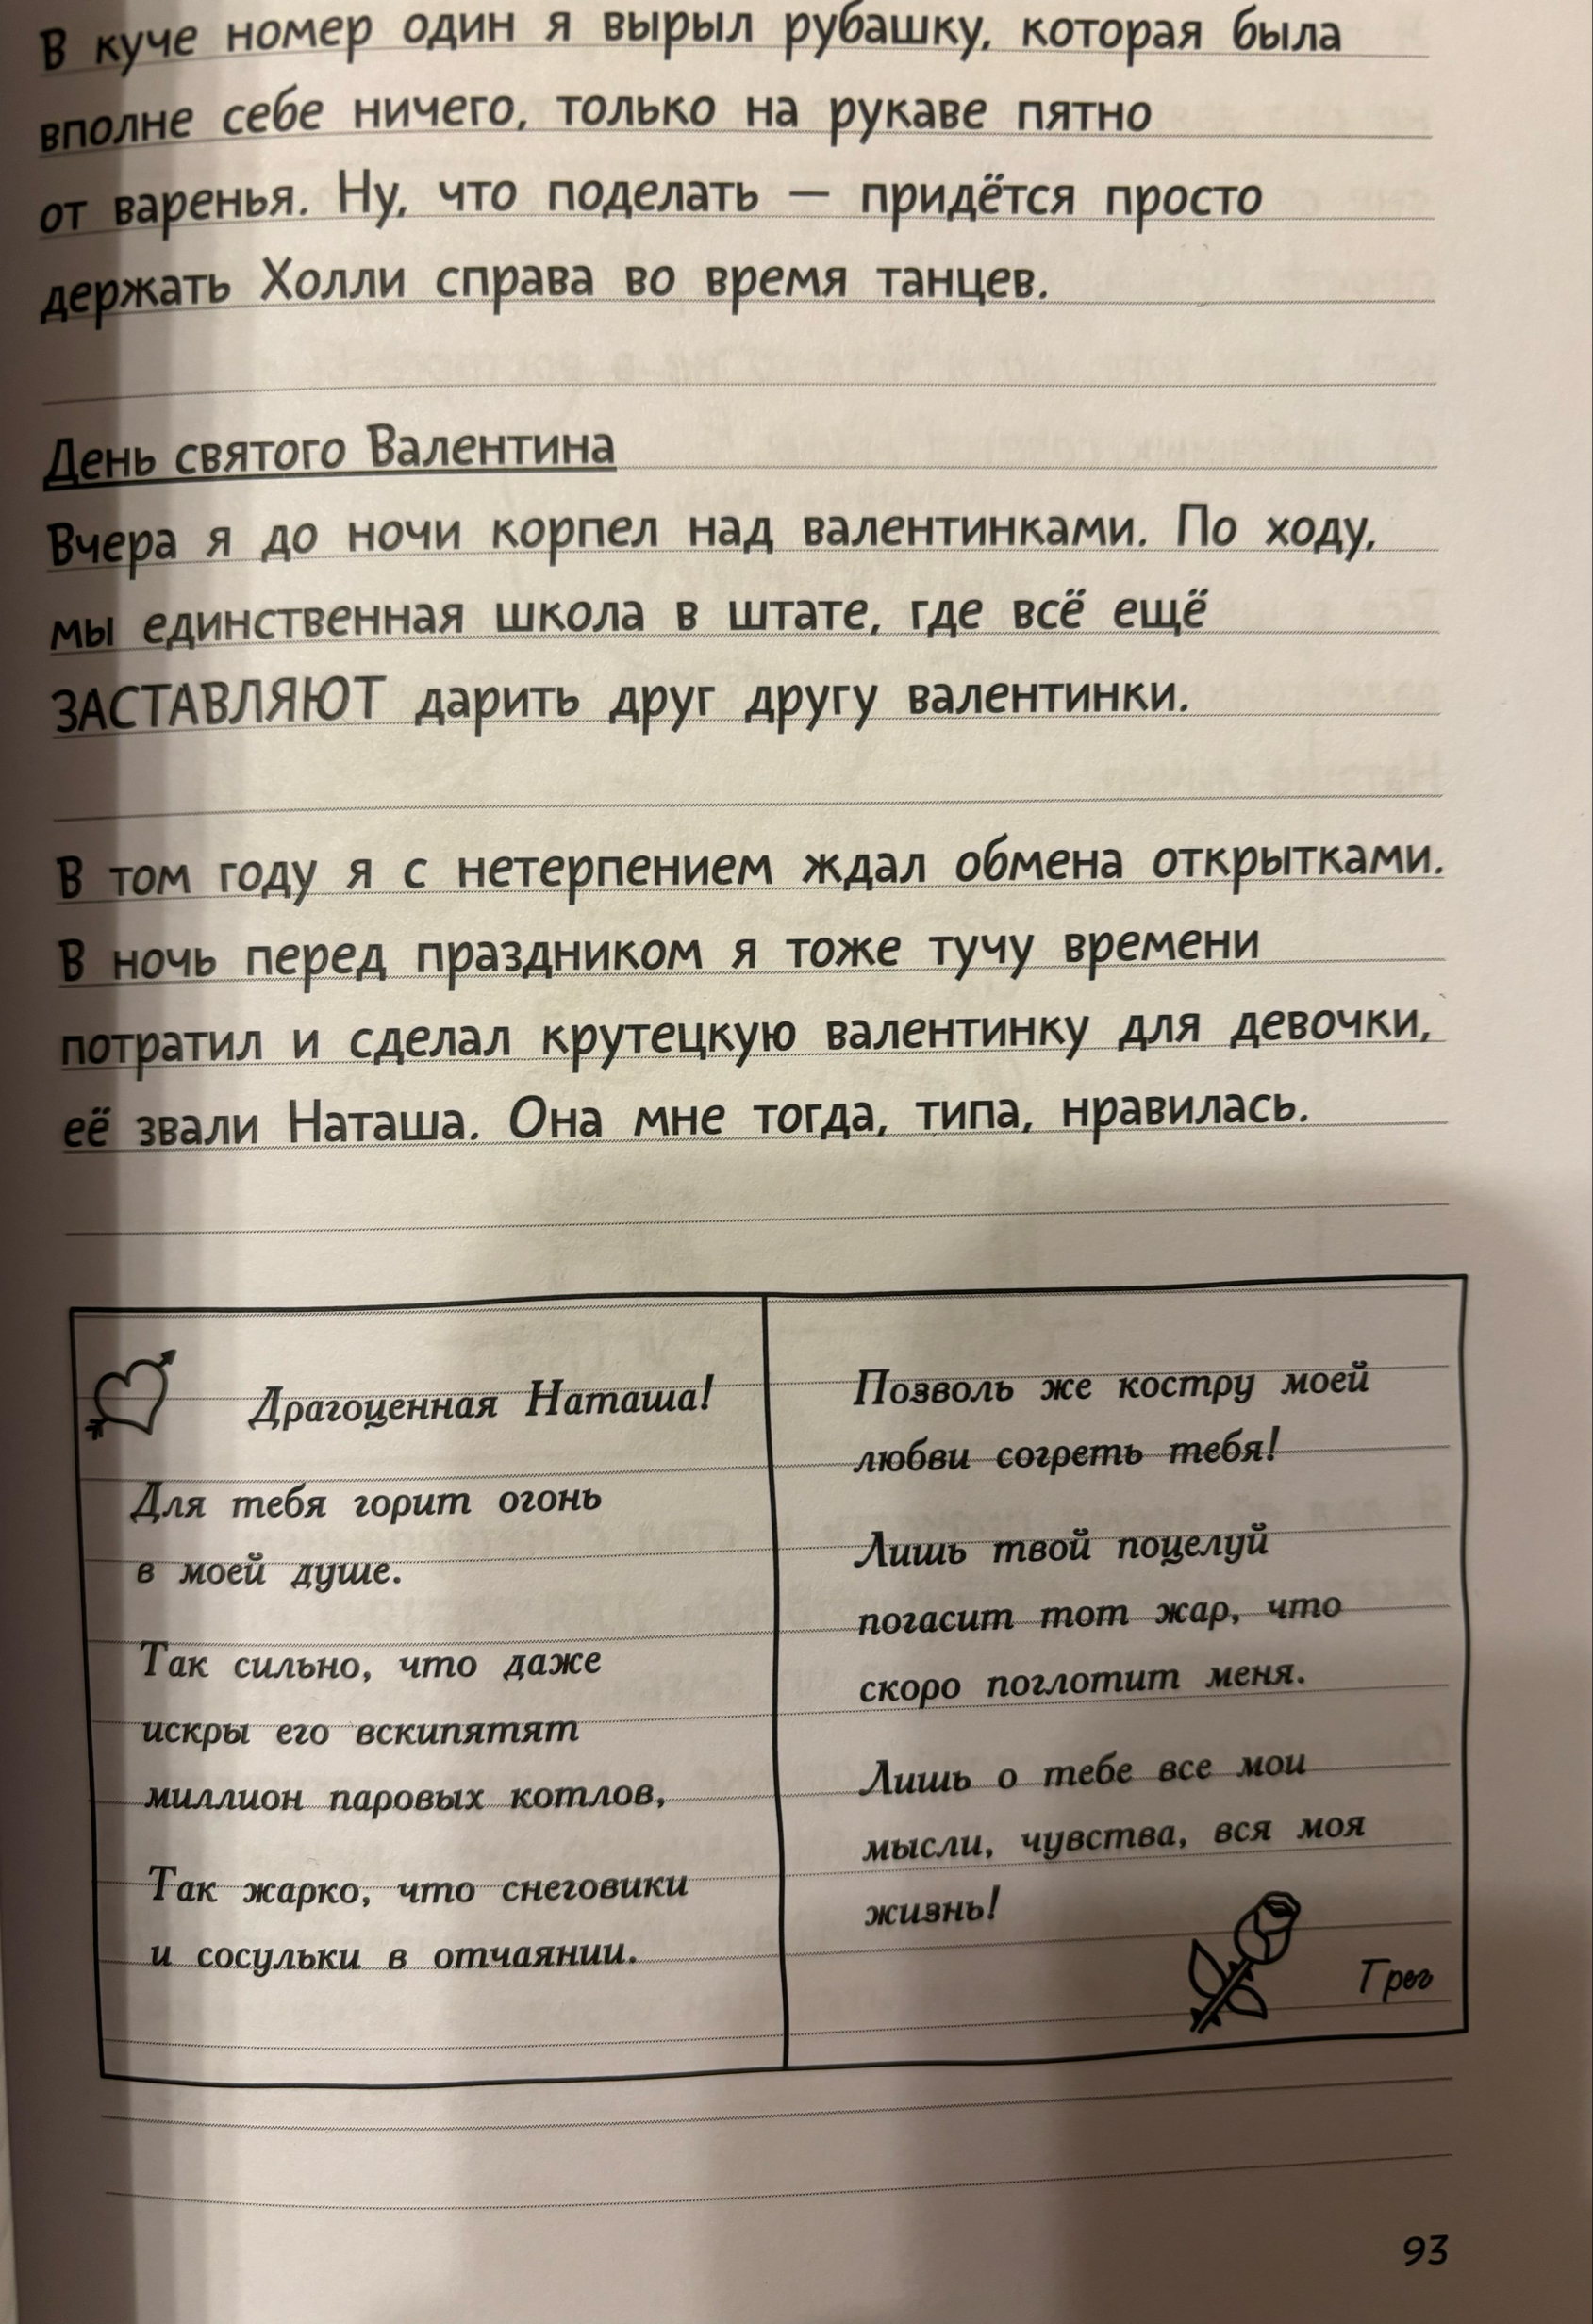 В куче номер один я вырыл рубашку, которая была
вполне себе ничего, только на рукаве пятно
от варенья. Ну, что поделать — придётся просто
держать Холли справа во время танцев.
День святого Валентина
Вчера я до ночи корпел над валентинками. По ходу,
мы единственная школа в штате, где всё ещё
ЗАСТАВЛЯЮТ дарить друг другу валентинки.
В том году я с нетерпением ждал обмена открытками.
В ночь перед праздником я тоже тучу времени
потратил и сделал крутецкую валентинку для девочки,
её звали Наташа. Она мне тогда, типа, нравилась.
Драгоценная Наташа!
Для тебя горит огонь
в моей душе.
Так сильно, что даже
искры его вскипятят
миллион паровых котлов,
Так жарко, что снеговики
и сосульки в отчаянии.
Позволь же костру моей
любви согреть тебя!
Лишь твой поцелуй
погасит тот жар, что
скоро поглотит меня.
Лишь о тебе все мои
мысли, чувства, вся моя
жизнь!
Грег
93